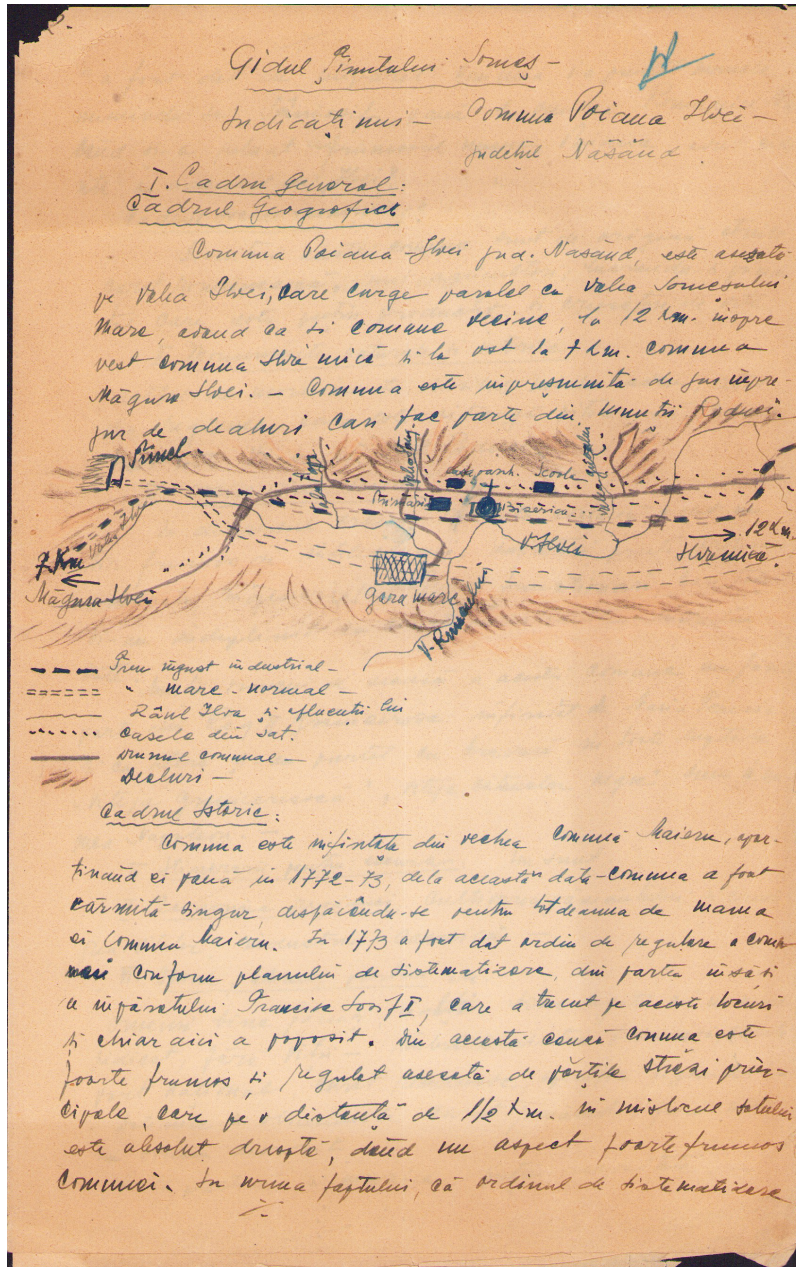 Gidul Ținutului Someș -
Indicațiuni - Comuna Poiana Ilvei -
județul Năsăud
I. Cadru General:
Cadrul Geografic
Comuna Poiana-Ilvei jud. Năsăud, este așezată
pe Valea Ilvei, care curge paralel cu Valea Someșului
Mare, având ca și comune vecine, la 12 km. înspre
vest comuna Ilva mică și la ost la 7 km. comuna
Măgura Ilvei. - Comuna este împresmuită de jur împre-
jur de dealuri cari fac parte din munții Rodnei.
Tunel
Școla
Primăria
Biserica
V. Ilvei
12 km.
Ilva mică.
7 Km
Valea Ilvei
Măgura Ilvei
Gara mare
Tren îngust industrial -
" mare - normal -
Râul Ilva și afluenții lui
Casele din sat.
Drumul comunal -
Dealuri -
Cadrul Istoric:
Comuna este înființată din vechea comună Maieru, apar-
ținând ei până în 1772-73, dela această dată comuna a fost
cârmită singur, despărțindu-se pentru totdeauna de mama
ei comuna Maieru. In 1773 a fost dat ordin de regulare a
conform planului de sistematizare, din partea însăși
a împăratului Francisc Iosif I, care a trecut pe aceste locuri
și chiar aici a poposit. Din această cauză comuna este
foarte frumos și regulat așezată de părțile străzi prin-
cipale, care pe o distanță de 1/2 km. în mijlocul satului
este absolut dreaptă, dând un aspect foarte frumos
comunei. In urma faptului, că ordinul de sistematizare